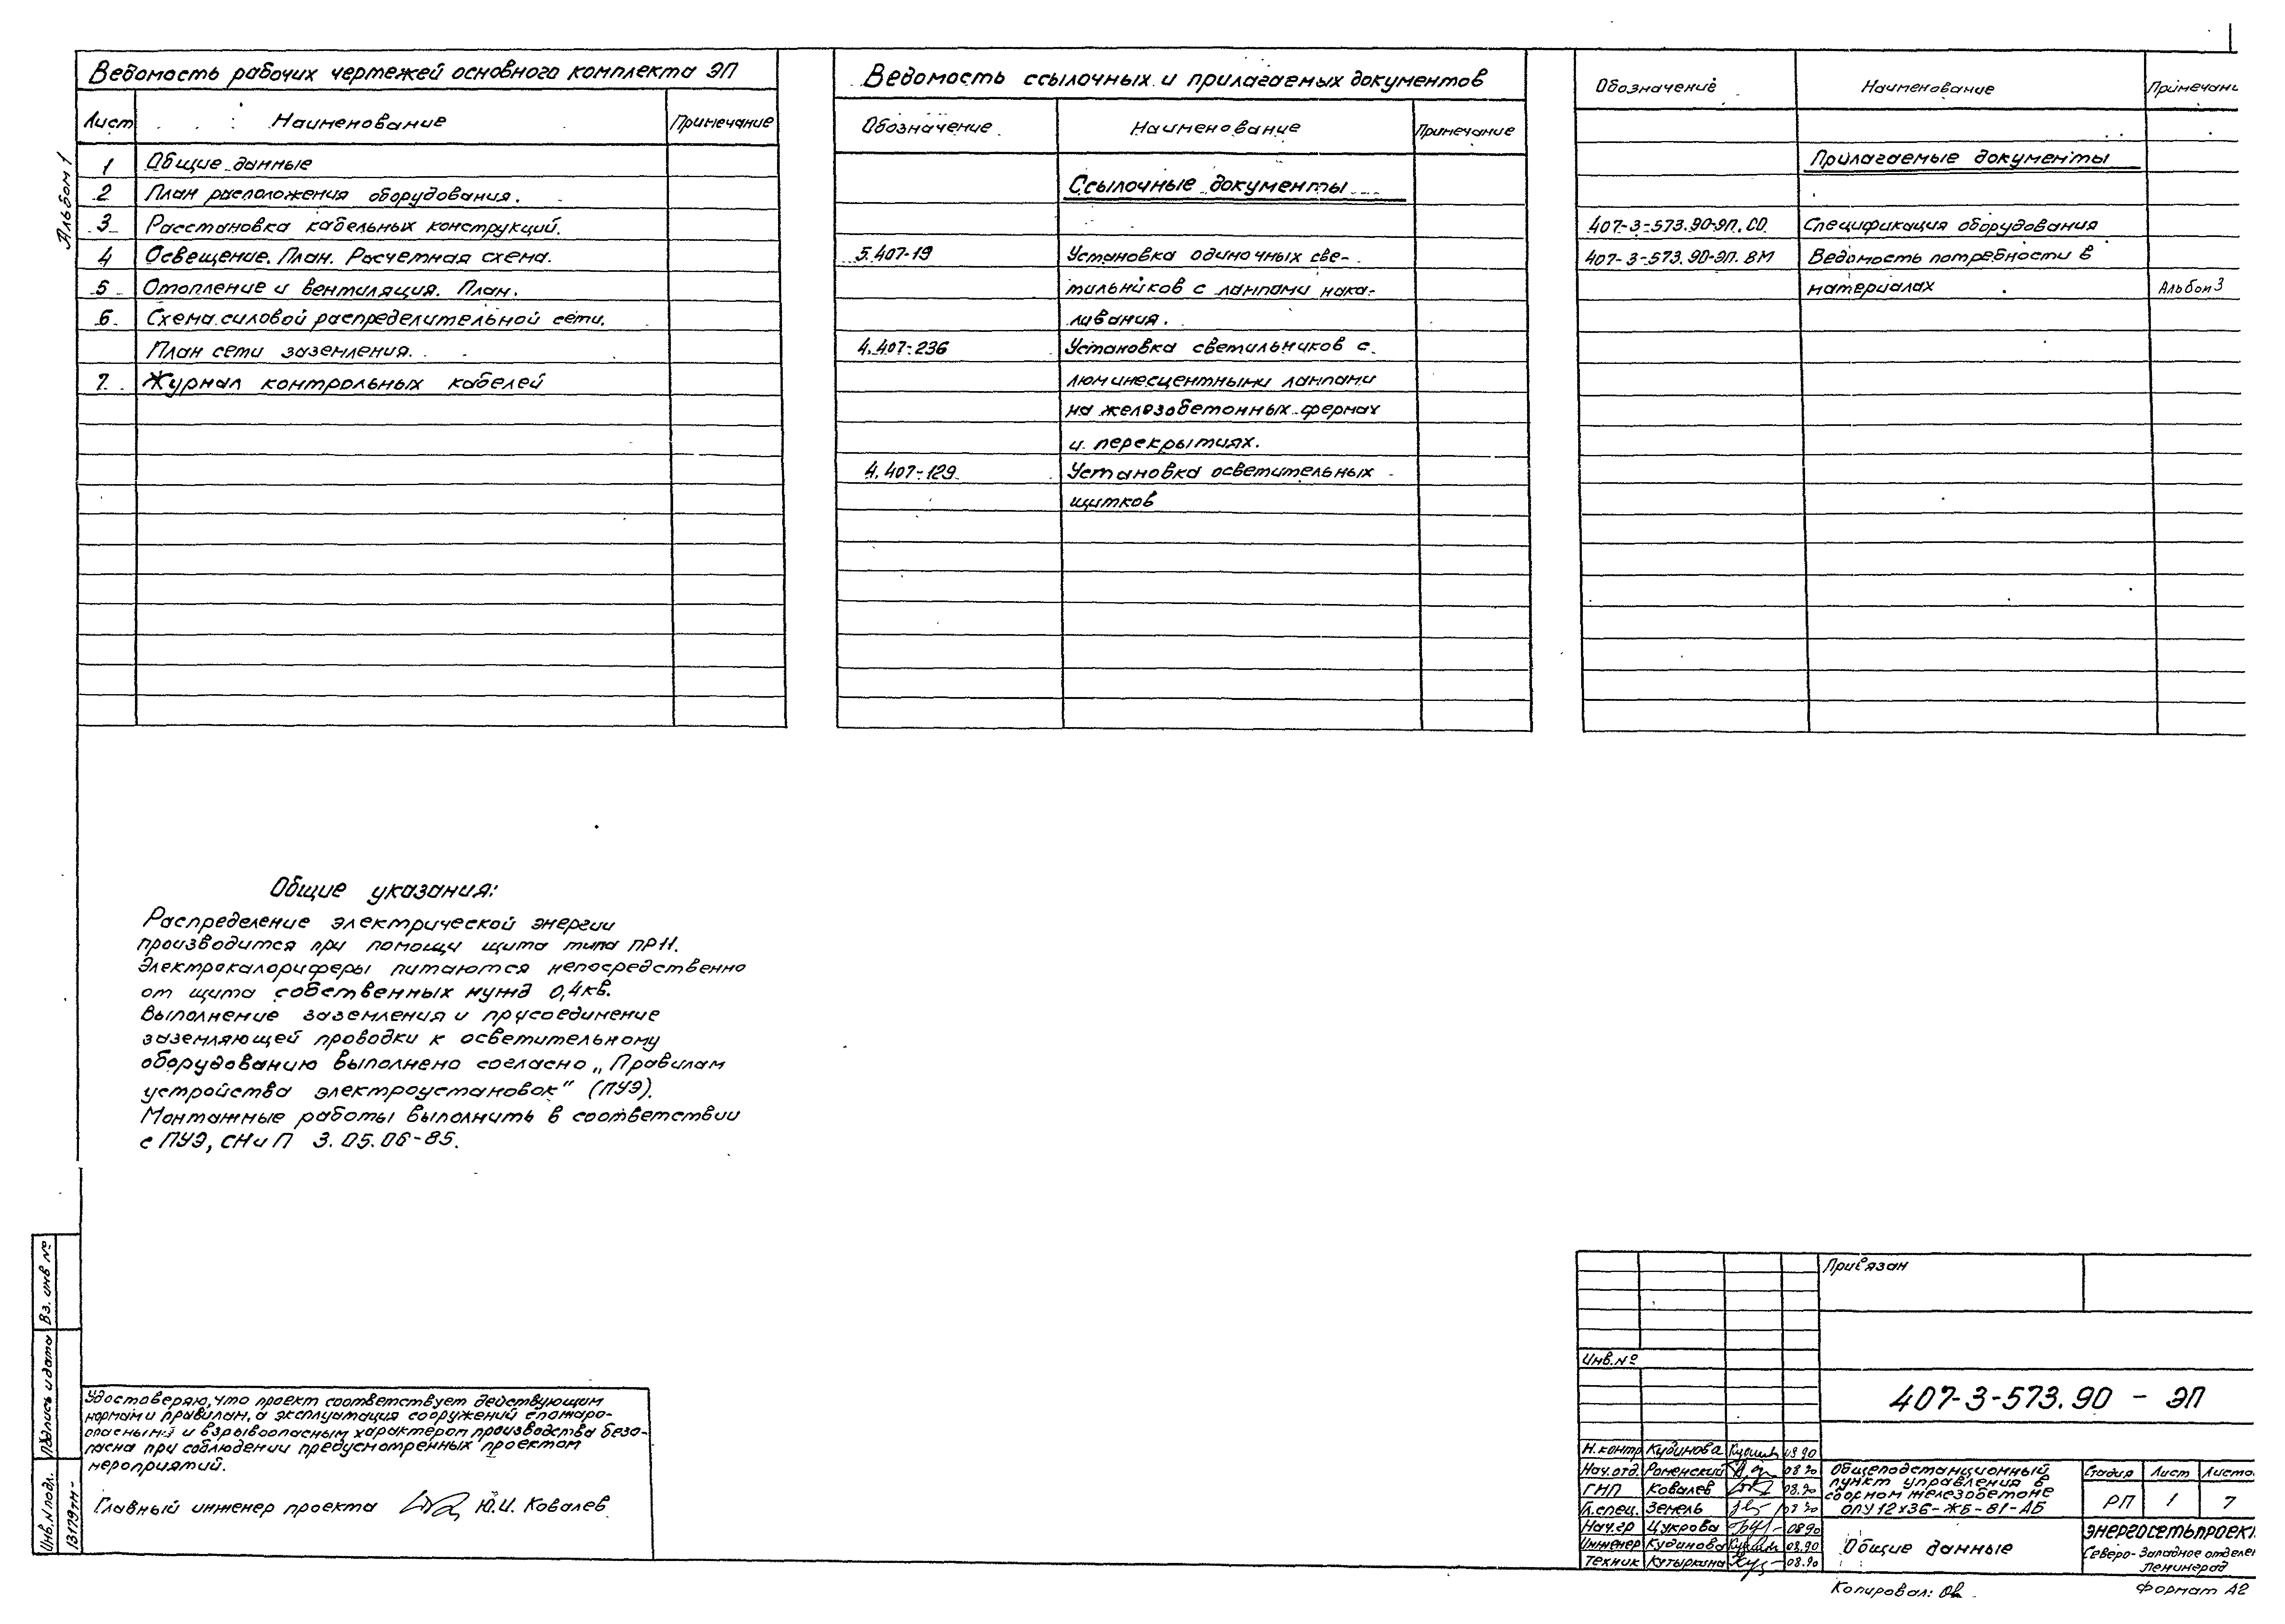 Альбом 1
Ведомость рабочих чертежей основного комплекта ЭП
Лист Наименование Примечание
1 Общие данные
2 План расположения оборудования.
3 Расстановка кабельных конструкций.
4 Освещение. План. Расчетная схема.
5 Отопление и вентиляция. План.
6 Схема силовой распределительной сети.
План сети заземления.
7 Журнал контрольных кабелей
Ведомость ссылочных и прилагаемых документов
Обозначение Наименование Примечание
Ссылочные документы
5.407-19 Установка одиночных све-
тильников с лампами нака-
ливания.
4.407-236 Установка светильников с
люминесцентными лампами
на железобетонных фермах
и перекрытиях.
4.407-129 Установка осветительных
щитков
Обозначение Наименование Примечани
Прилагаемые документы
407-3-573.90-ЭП.СО. Спецификация оборудования
407-3-573.90-ЭП.ВМ Ведомость потребности в
материалах Альбом 3
Общие указания:
Распределение электрической энергии
производится при помощи щита типа ПР11.
Электрокалориферы питаются непосредственно
от щита собственных нужд 0,4кв.
Выполнение заземления и присоединение
заземляющей проводки к осветительному
оборудованию выполнено согласно „Правилам
устройства электроустановок“ (ПУЭ).
Монтажные работы выполнить в соответствии
с ПУЭ, СНиП 3.05.06-85.
Удостоверяю, что проект соответствует действующим
нормам и правилам, а эксплуатация сооружений с пожаро-
опасным и взрывоопасным характером производства безо-
пасна при соблюдении предусмотренных проектом
мероприятий.
Главный инженер проекта Ю.И. Ковалев
Инв.N подл. Подпись и дата Вз. инв №
13179тм-
Привязан
Инв.№
407-3-573.90 - ЭП
Н.контр Кудинова 08.90
Нач.отд. Роменский 08.90
ГИП Ковалев 08.90
Гл.спец. Земель 08.90
Нач.гр Цукрова 08.90
Инженер Кудинова 08.90
Техник Кутыркина 08.90
Общеподстанционный
пункт управления в
сборном железобетоне
ОПУ 12х36-ЖБ-81-АБ
Стадия Лист Листо
РП 1 7
Общие данные
Энергосетьпроек
Северо-Западное отделе
Ленинград
Копировал:
Формат А2